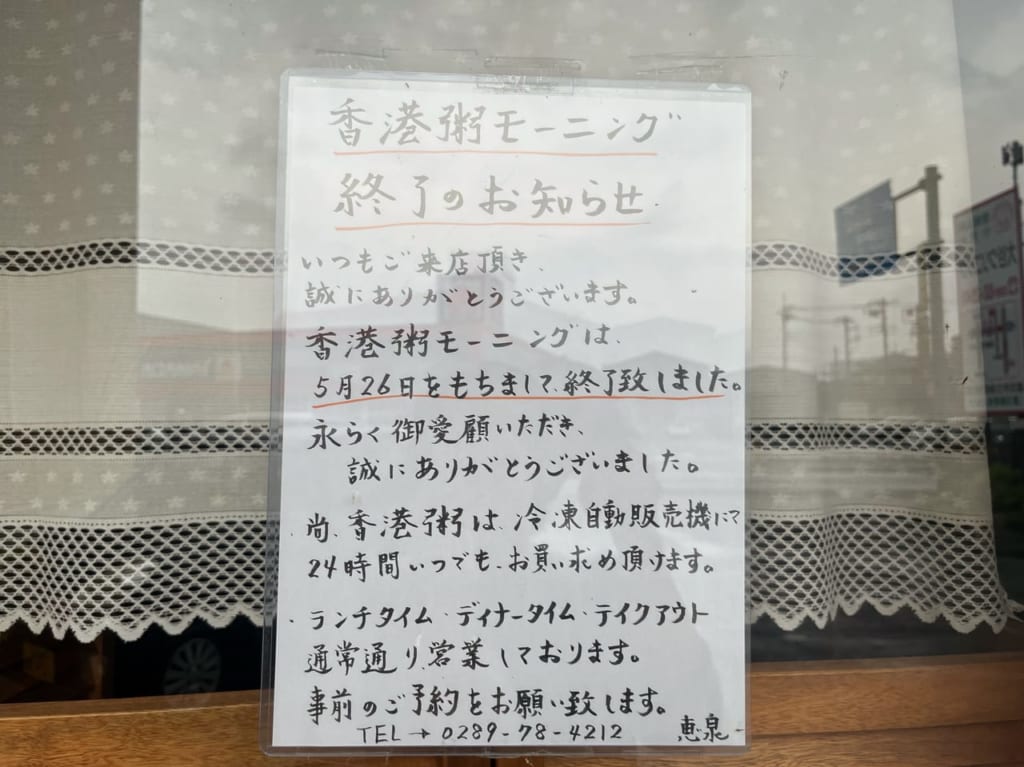 香港粥モーニング
終了のお知らせ
いつもご来店頂き、
誠にありがとうございます。
香港粥モーニングは、
5月26日をもちまして、終了致しました。
永らく御愛顧いただき、
誠にありがとうございました。
尚、香港粥は、冷凍自動販売機にて
24時間いつでも、お買い求め頂けます。
ランチタイム・ディナータイム・テイクアウト
通常通り、営業しております。
事前のご予約をお願い致します。
TEL→0289-78-4212 恵泉